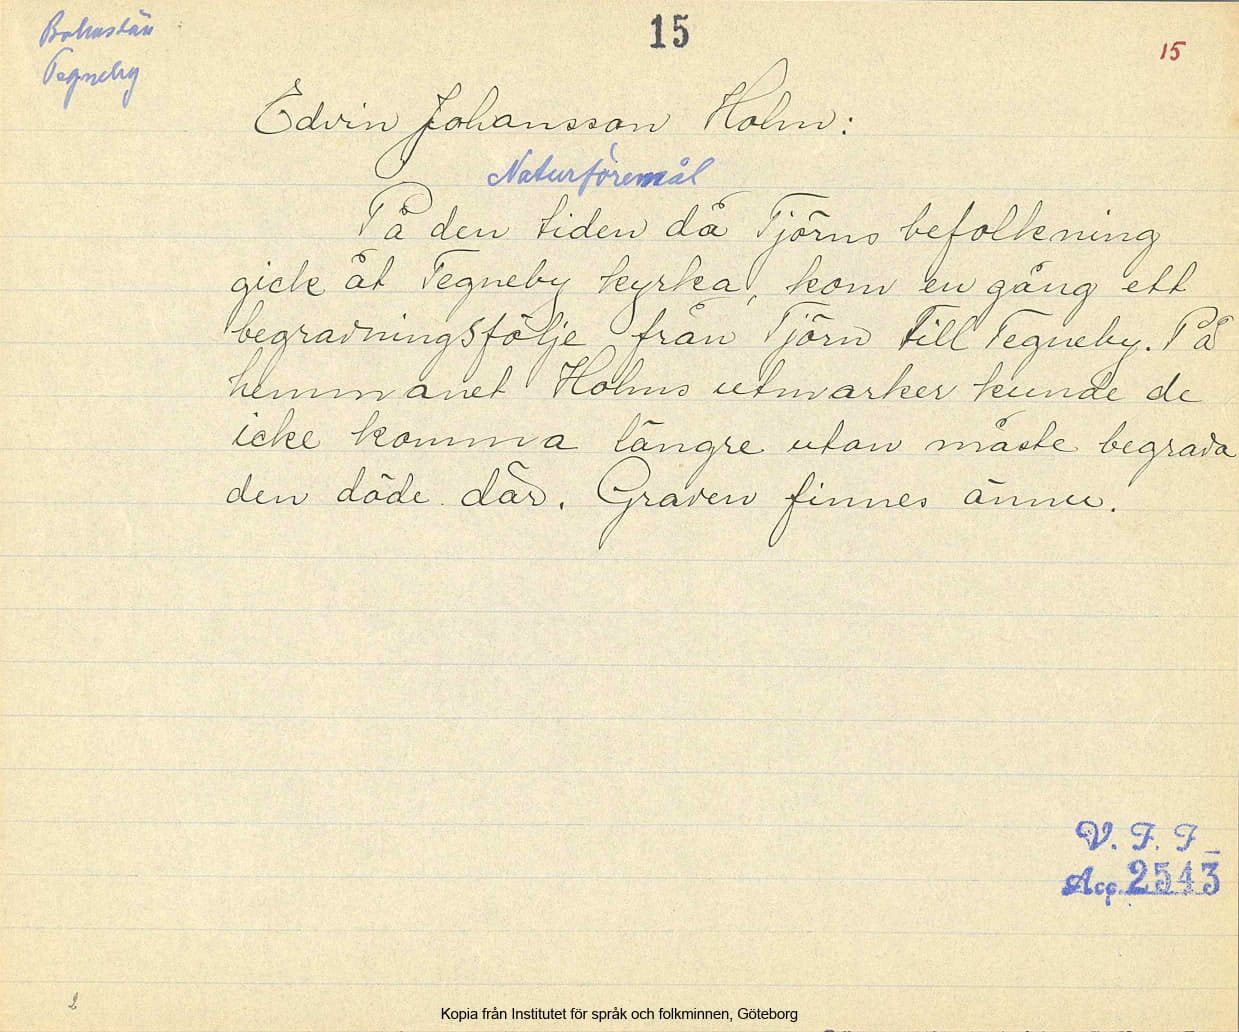 Bohuslän
Tegneby
15
15
Edvin Johansson Holm:
Naturföremål
På den tiden då Tjörns befolkning
gick åt Tegneby kyrka, kom en gång ett
begravningsfölje från Tjörn till Tegneby. På
hemmanet Holms utmarker kunde de
icke komma längre utan måste begrava
den döde där. Graven finnes ännu.
V. F. F.
Acc. 2543
2
Kopia från Institutet för språk och folkminnen, Göteborg